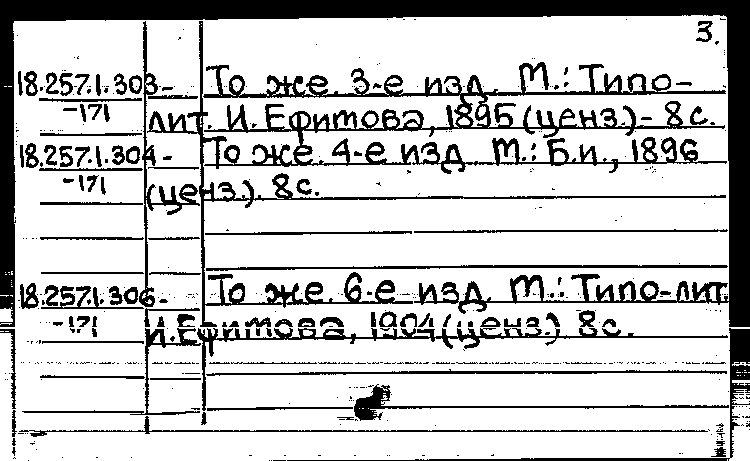 3.
18.257.1.303- То же. 3-е изд. М.: Типо-
-171 лит. И. Ефимова, 1895 (ценз.)- 8 с.
18.257.1.304- То же. 4-е изд. М.: Б.и., 1896
-171 (ценз.). 8 с.
18.257.1.306- То же. 6-е изд. М.: Типо-лит.
-171 И. Ефимова, 1904 (ценз.) 8 с.